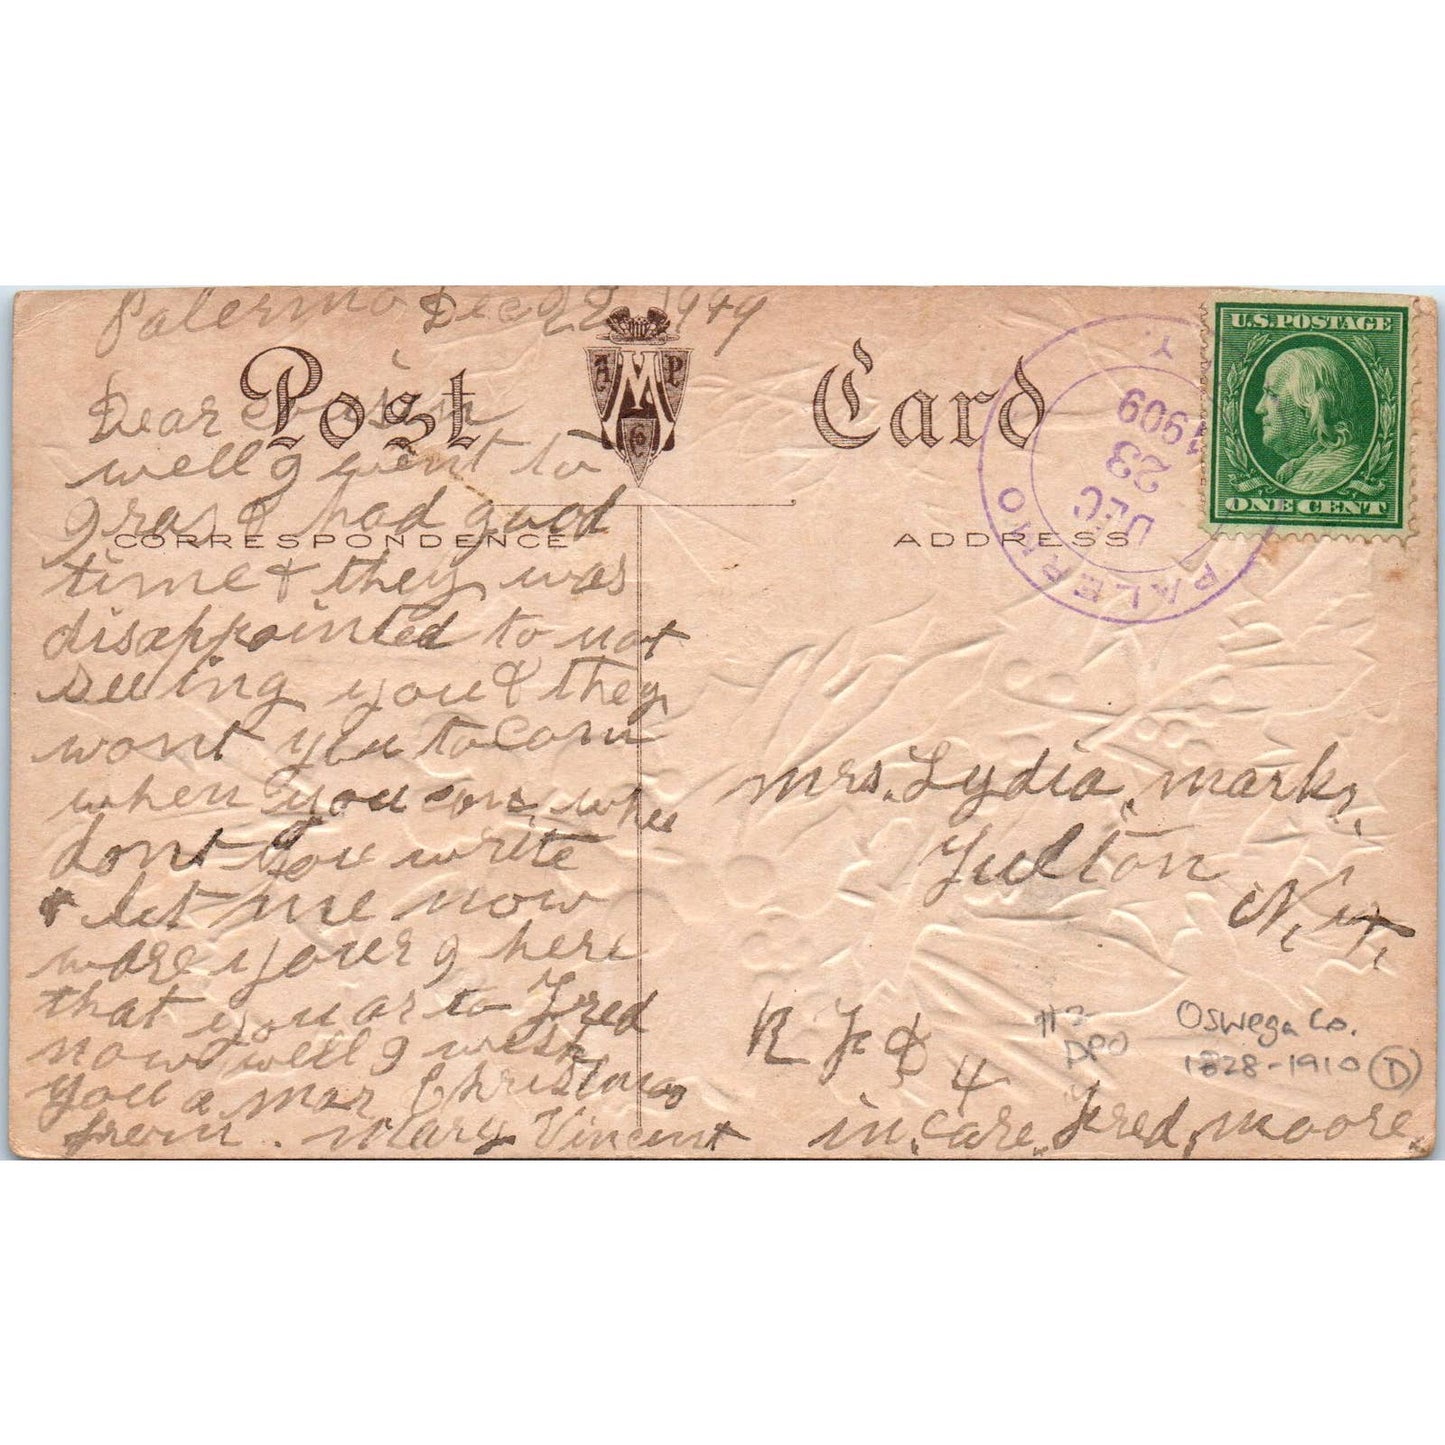 Palermo Dec 22 1909
Post Card
A M P
Co
Dear cousin
well I went to
Gras & had good
CORRESPONDENCE
time & they was
disappointed to not
seeing you & they
wont you to com
when you can, whe
dont you write
& let me now
ware you er I here
that you ar to Fred
now well I wesh
you a mar Christmas
from. Mary Vincent
ADDRESS
PALERMO
N.Y.
DEC
23
1909
U.S.POSTAGE
ONE CENT
Mrs. Lydia, Marks,
Fulton
N. Y.
R F D
4
in, care, Fred, Moore,
#2
DPO
Oswego Co.
1828-1910 D